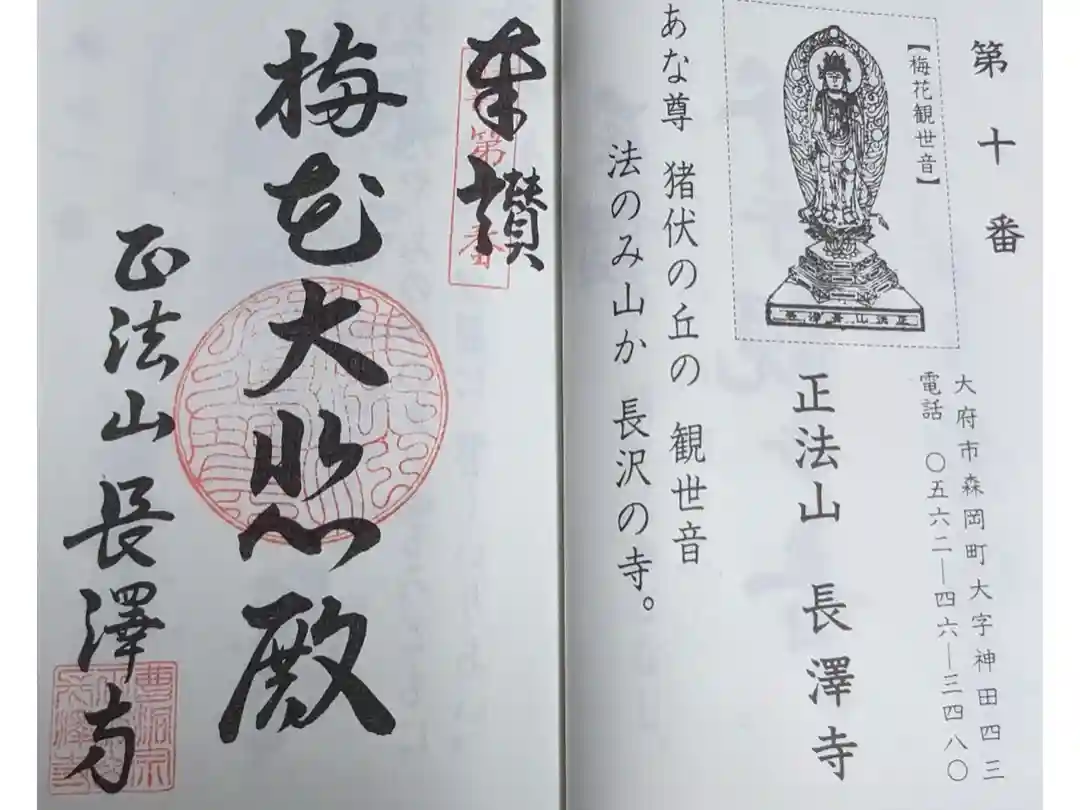 第十番
【梅花観世音】
正法山長澤寺
大府市森岡町大字神田四三
電話 〇五六二―四六―三四八〇
正法山 長澤寺
あな尊 猪伏の丘の 観世音
法のみ山か 長沢の寺。
奉讃
第 番
梅花大悲殿
正法山長澤寺
曹洞宗